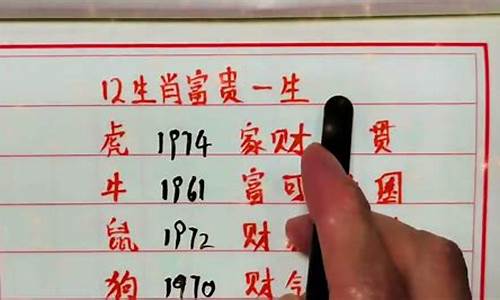 12生肖富贵一生
虎 1974 家财 贯
牛 1961 富可
鼠 1972 财
狗 1970 财气